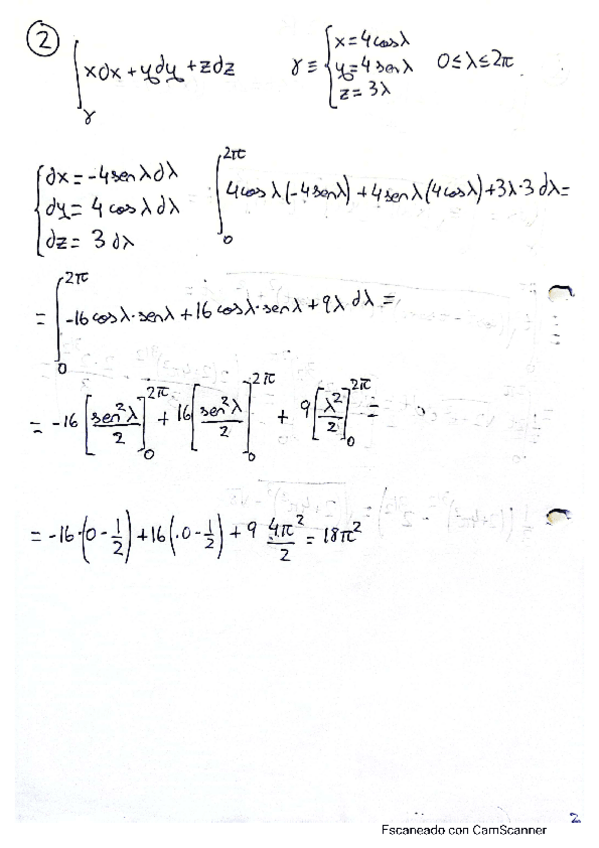 2 ∫γ xdx + ydy + zdz γ ≡ { x = 4cosλ y = 4senλ z = 3λ 0 ≤ λ ≤ 2π
{ dx = -4senλdλ dy = 4cosλdλ dz = 3dλ ∫₀^2π 4cosλ(-4senλ) + 4senλ(4cosλ) + 3λ·3 dλ =
= ∫₀^2π -16cosλ·senλ + 16cosλ·senλ + 9λ dλ =
= -16 [sen²λ/2]₀^2π + 16 [sen²λ/2]₀^2π + 9 [λ²/2]₀^2π =
= -16·(0 - 1/2) + 16(·0 - 1/2) + 9 4π²/2 = 18π²
2
Escaneado con CamScanner